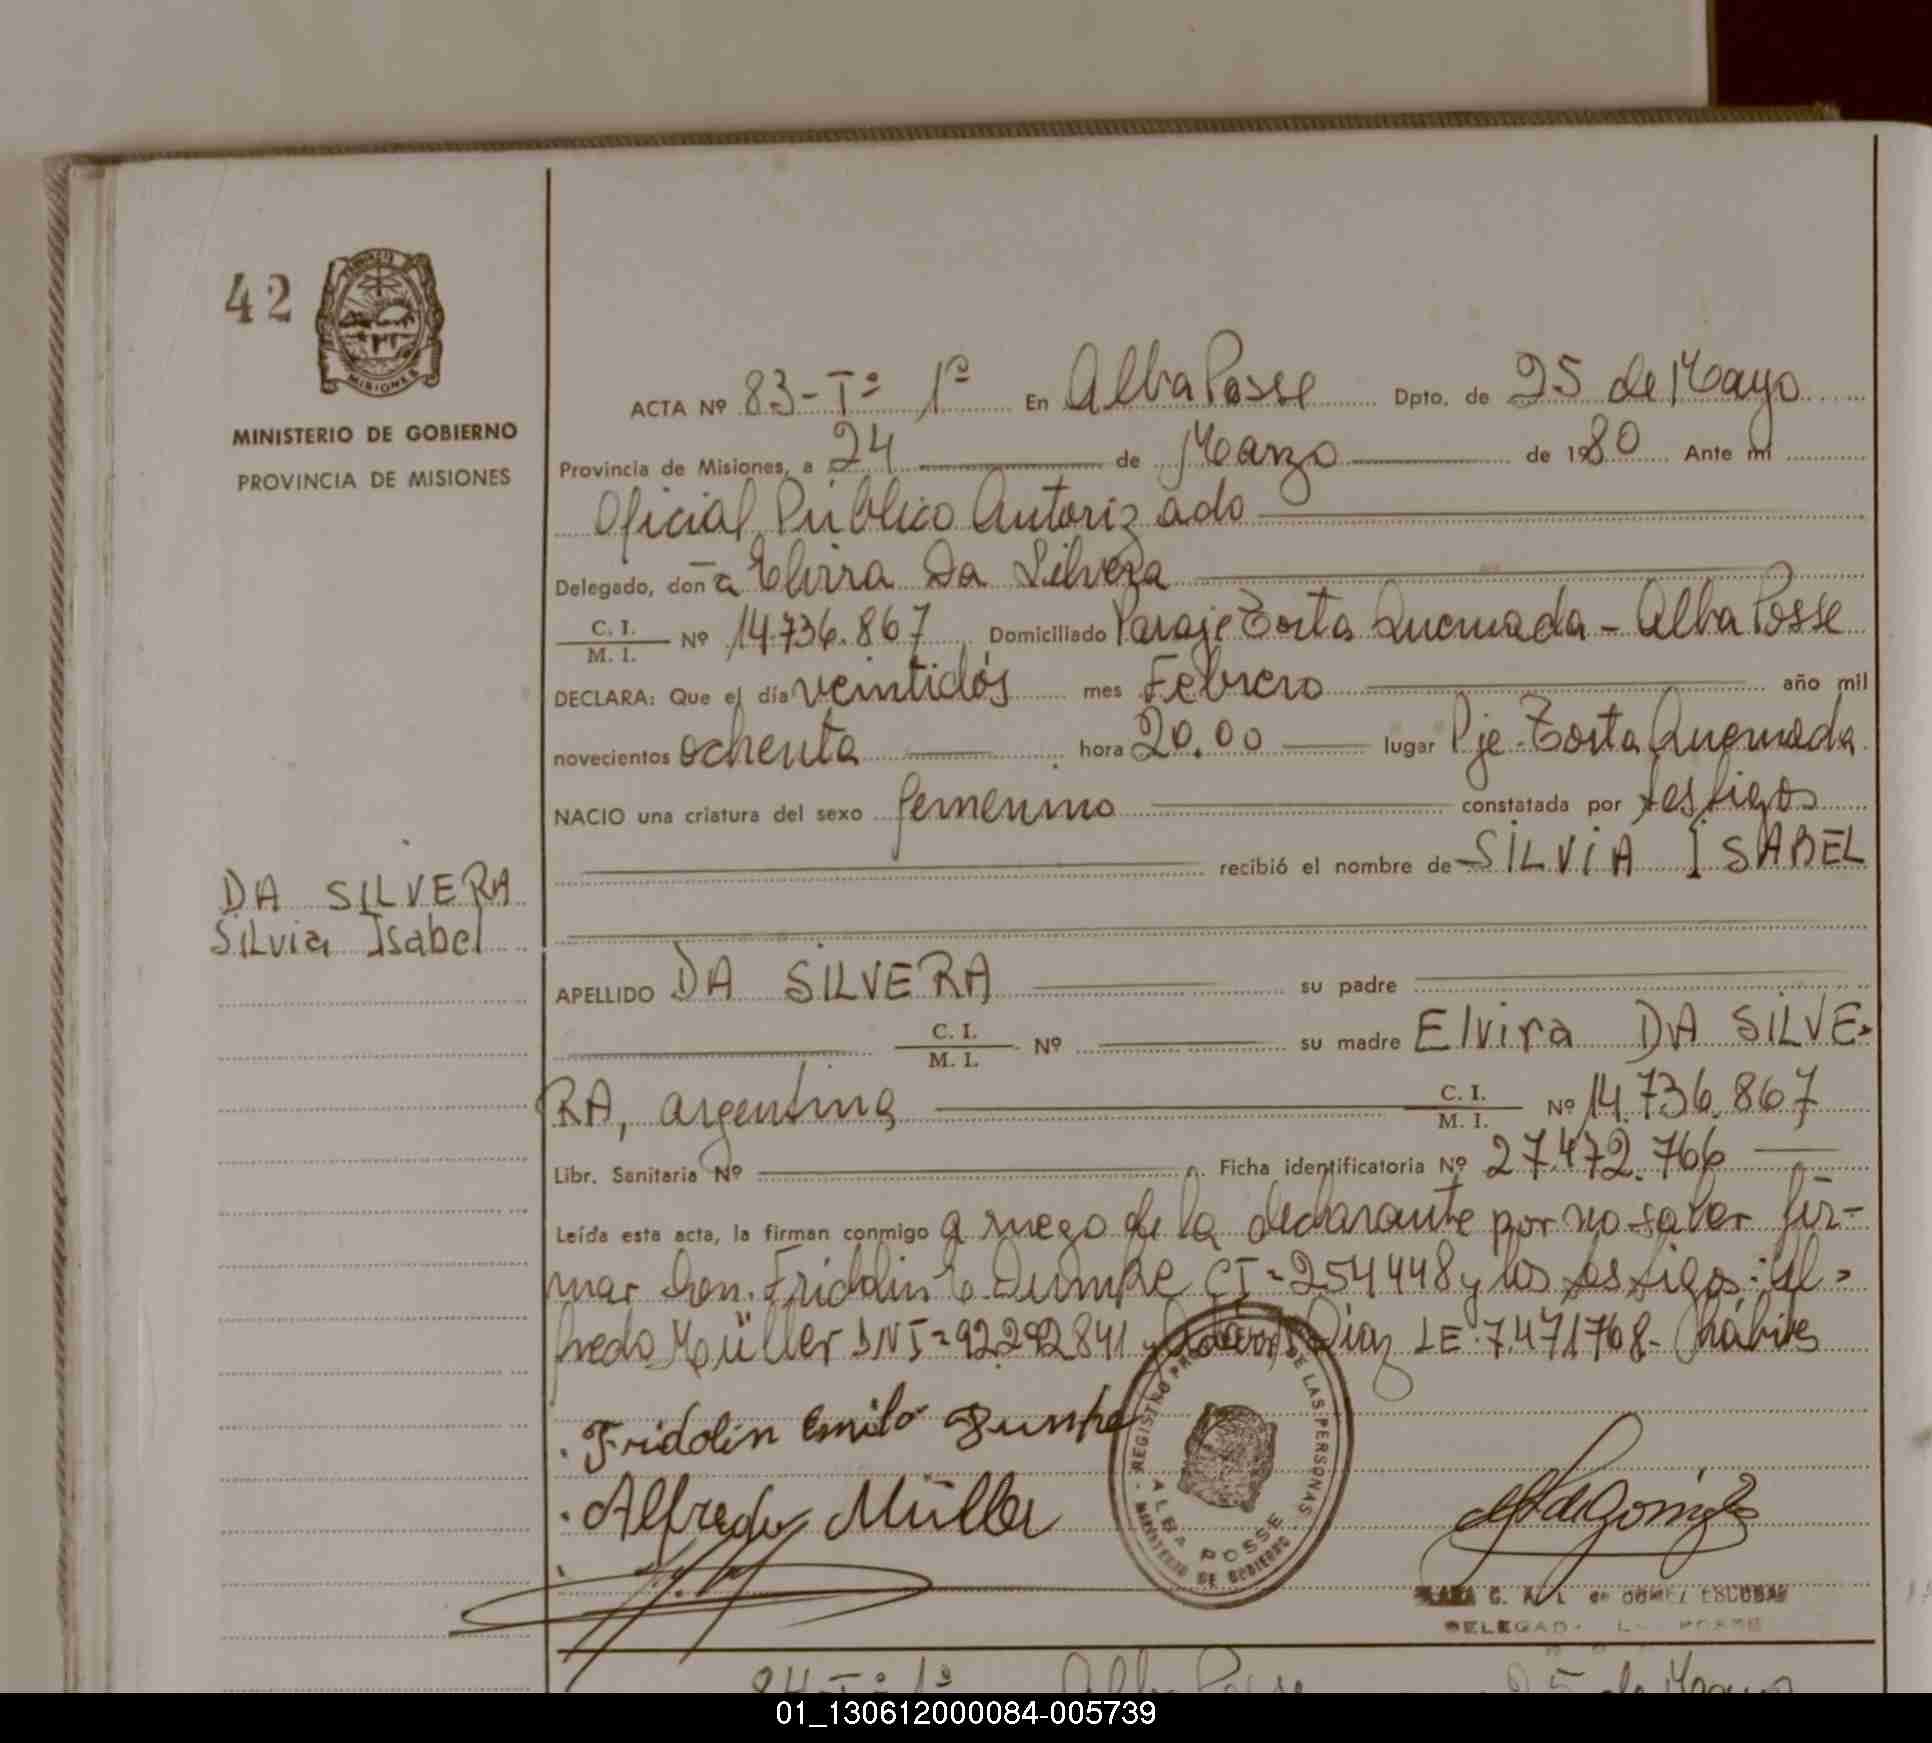 42
MISIONES
MINISTERIO DE GOBIERNO
PROVINCIA DE MISIONES
ACTA Nº 83-Tº 1º En Alba Posse Dpto. de 25 de Mayo
Provincia de Misiones, a 24 de Marzo de 1980 Ante mí
Oficial Público Autorizado
Delegado, don a Elvira Da Silvera
C. I. / M. I. Nº 14.736.867 Domiciliado Paraje Torta Quemada - Alba Posse
DECLARA: Que el día veintidós mes Febrero año mil
novecientos ochenta hora 20.00 lugar Pje. Torta Quemada
NACIO una criatura del sexo femenino constatada por testigos
recibió el nombre de SILVIA ISABEL
DA SILVERA
Silvia Isabel
APELLIDO DA SILVERA su padre
C. I. / M. I. Nº su madre Elvira DA SILVE-
RA, argentina C. I. / M. I. Nº 14.736.867
Libr. Sanitaria Nº Ficha identificatoria Nº 27.472.766
Leída esta acta, la firman conmigo a ruego de la declarante por no saber fir-
mar don Fridolin E. Dumke CI=254448 y los testigos: Al-
fredo Müller DNI=92.292841 y Diaz LE 7.471768- hábiles
Fridolin Emilo Dumke
Alfredo Müller
REGISTRO DE LAS PERSONAS
ALBA POSSE
MINISTERIO DE GOBIERNO
de GOMEZ ESCOBAR
DELEGAD. POSSE
84-Tº 1º Alba Posse 25 de Mayo
01_130612000084-005739